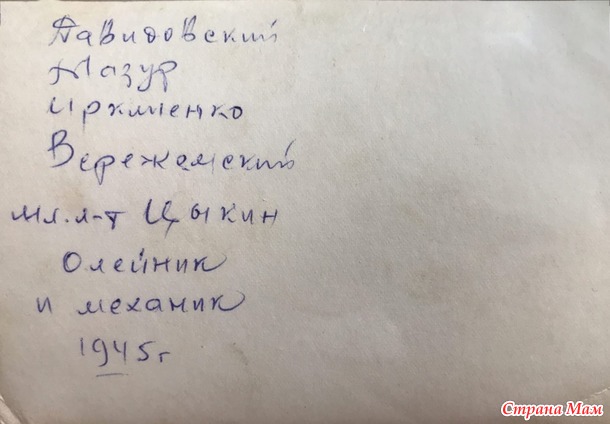 Давидовский
Мазур
Ирклиенко
Вережемский
мл. л-т Цыкин
Олейник
и механик
1945 г
Страна Мам